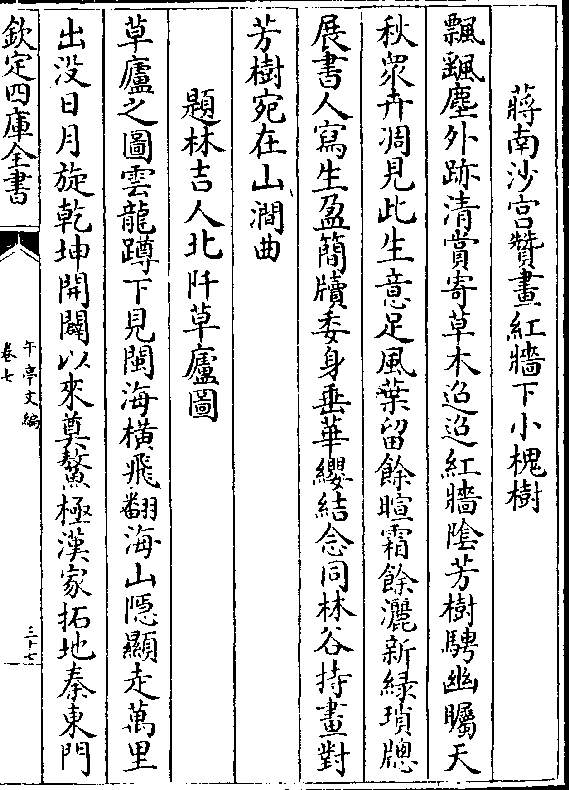 蔣南沙宫贊畫紅牆下小槐樹
飄飄塵外跡清賞寄草木迢迢紅牆陰芳樹騁幽矚天
秋衆卉凋見此生意足風葉留餘暄霜餘灑新緑瑣牕
展書人寫生盈簡牘委身垂華纓結念同林谷持畫對
芳樹宛在山澗曲
題林吉人北阡草廬圖
草廬之圖雲龍蹲下見閩海横飛翻海山隠顯走萬里
出没日月旋乾坤開闢以來奠鰲極漢家拓地秦東門
欽定四庫全書
午亭文編
卷七
三十七